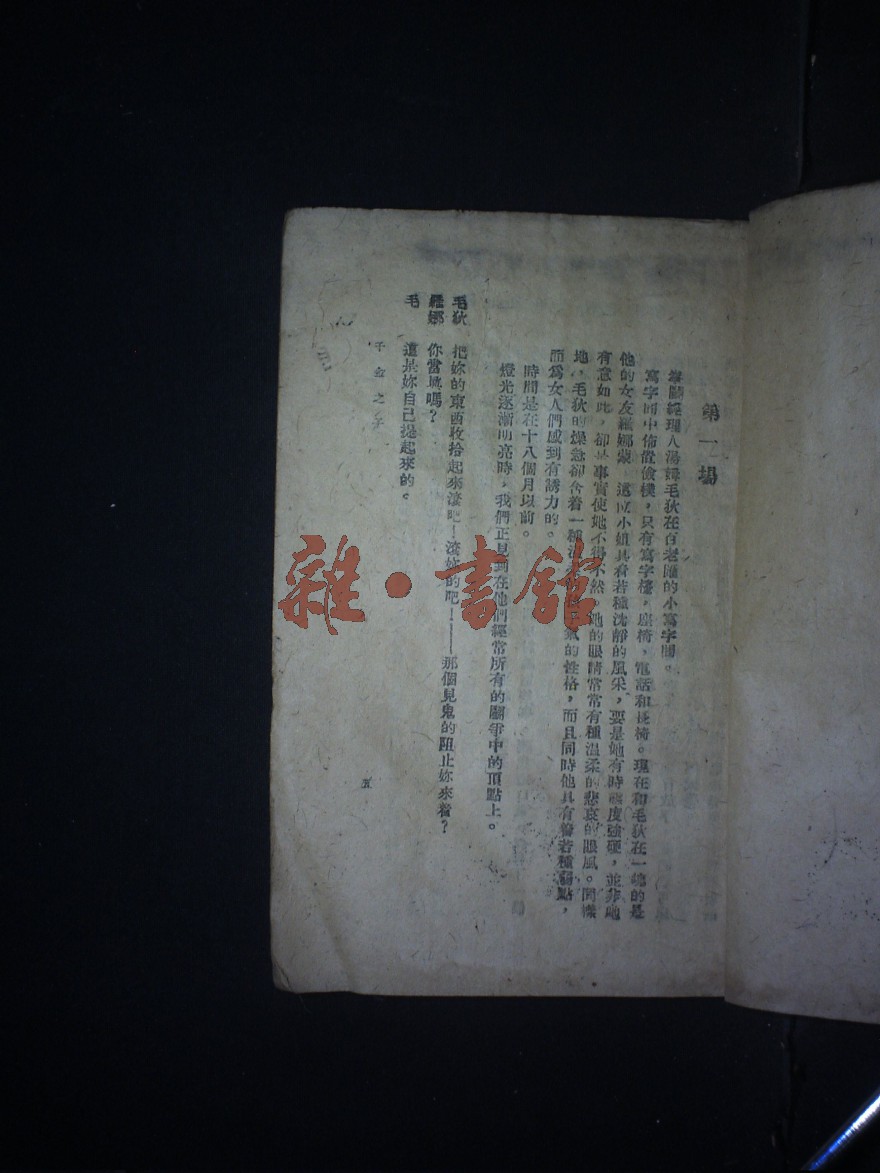 第一場
拳鬪經理人湯姆毛狄在百老匯的小寫字間。
寫字間中佈置儉樸，只有寫字檯，座椅，電話和長椅。現在和毛狄在一塊的是
他的女友羅娜蒙，這位小姐具有若種沈靜的風采，要是她有時態度強硬，並非她
有意如此，卻是事實使她不得不然，她的眼睛常常有種溫柔的悲哀的眼風。同樣
地，毛狄的燥急卻含着一種 的性格，而且同時他具有着若種弱點，
而爲女人們感到有誘力的。
時間是在十八個月以前。
燈光逐漸明亮時，我們正見到在他們經常所有的鬪爭中的頂點上。
毛狄 把妳的東西收拾起來滾吧！滾妳的吧！——那個見鬼的阻止妳來着？
羅娜 你當眞嗎？
毛 這是妳自己提起來的。
千金之子
五
雜·書館